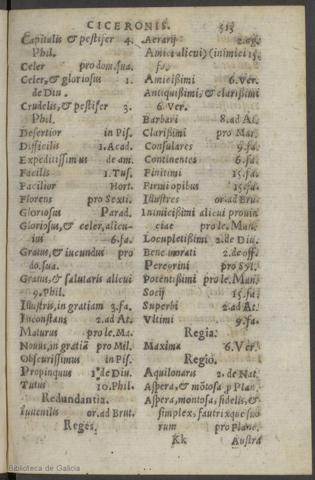 CICERONIS. 513
Capitalis & pestifer 4.
Phil.
Celer pro dom. sua.
Celer, & gloriosus 1.
de Diu.
Crudelis, & pestifer 3.
Phil.
Desertior in Pis.
Difficilis 1. Acad.
Expeditissimus de am.
Facilis 1. Tus.
Facilior Hort.
Florens pro Sexti.
Gloriosus Parad.
Gloriosus, & celer, alicu-
ius 6. fa.
Gratus, & iucundus pro
do. sua.
Gratus, & salutaris alicui
9. Phil.
Illustris, in gratiam 3. fa.
Inconstans 2. ad At.
Maturus pro le. Ma.
Nouus, in gratiã pro Mil.
Obscurissimus in Pis.
Propinquus 1. de Diu.
Tutus 10. Phil.
Redundantia.
Iuuenilis or. ad Brut.
Reges.
Aerarij 2. ag.
Amici alicui) (inimici 15.
fa.
Amicissimi 6. Ver.
Antiquissimi, & clarissimi
6. Ver.
Barbari 8. ad At.
Clarissimi pro Mar.
Consulares 9. fa.
Continentes 6. fa.
Finitimi 15. fa.
Firmi opibus 15. fa.
Illustres or. ad Bru.
Inimicissimi alicui prouin
ciae pro le. Man.
Locupletissimi 2. de Diu.
Bene morati 2. de off.
Peregrini pro Syl.
Potentissimi pro le. Man.
Socij 15. fa.
Superbi 2. ad At.
Vltimi 9. fa.
Regia.
Maxima 6. Ver.
Regio.
Aquilonaris 2. de Nat.
Aspera, & mõtosa p Plan.
Aspera, montosa, fidelis, &
simplex, fautrixque suo
rum pro Planc.
Kk Austra
Biblioteca de Galicia